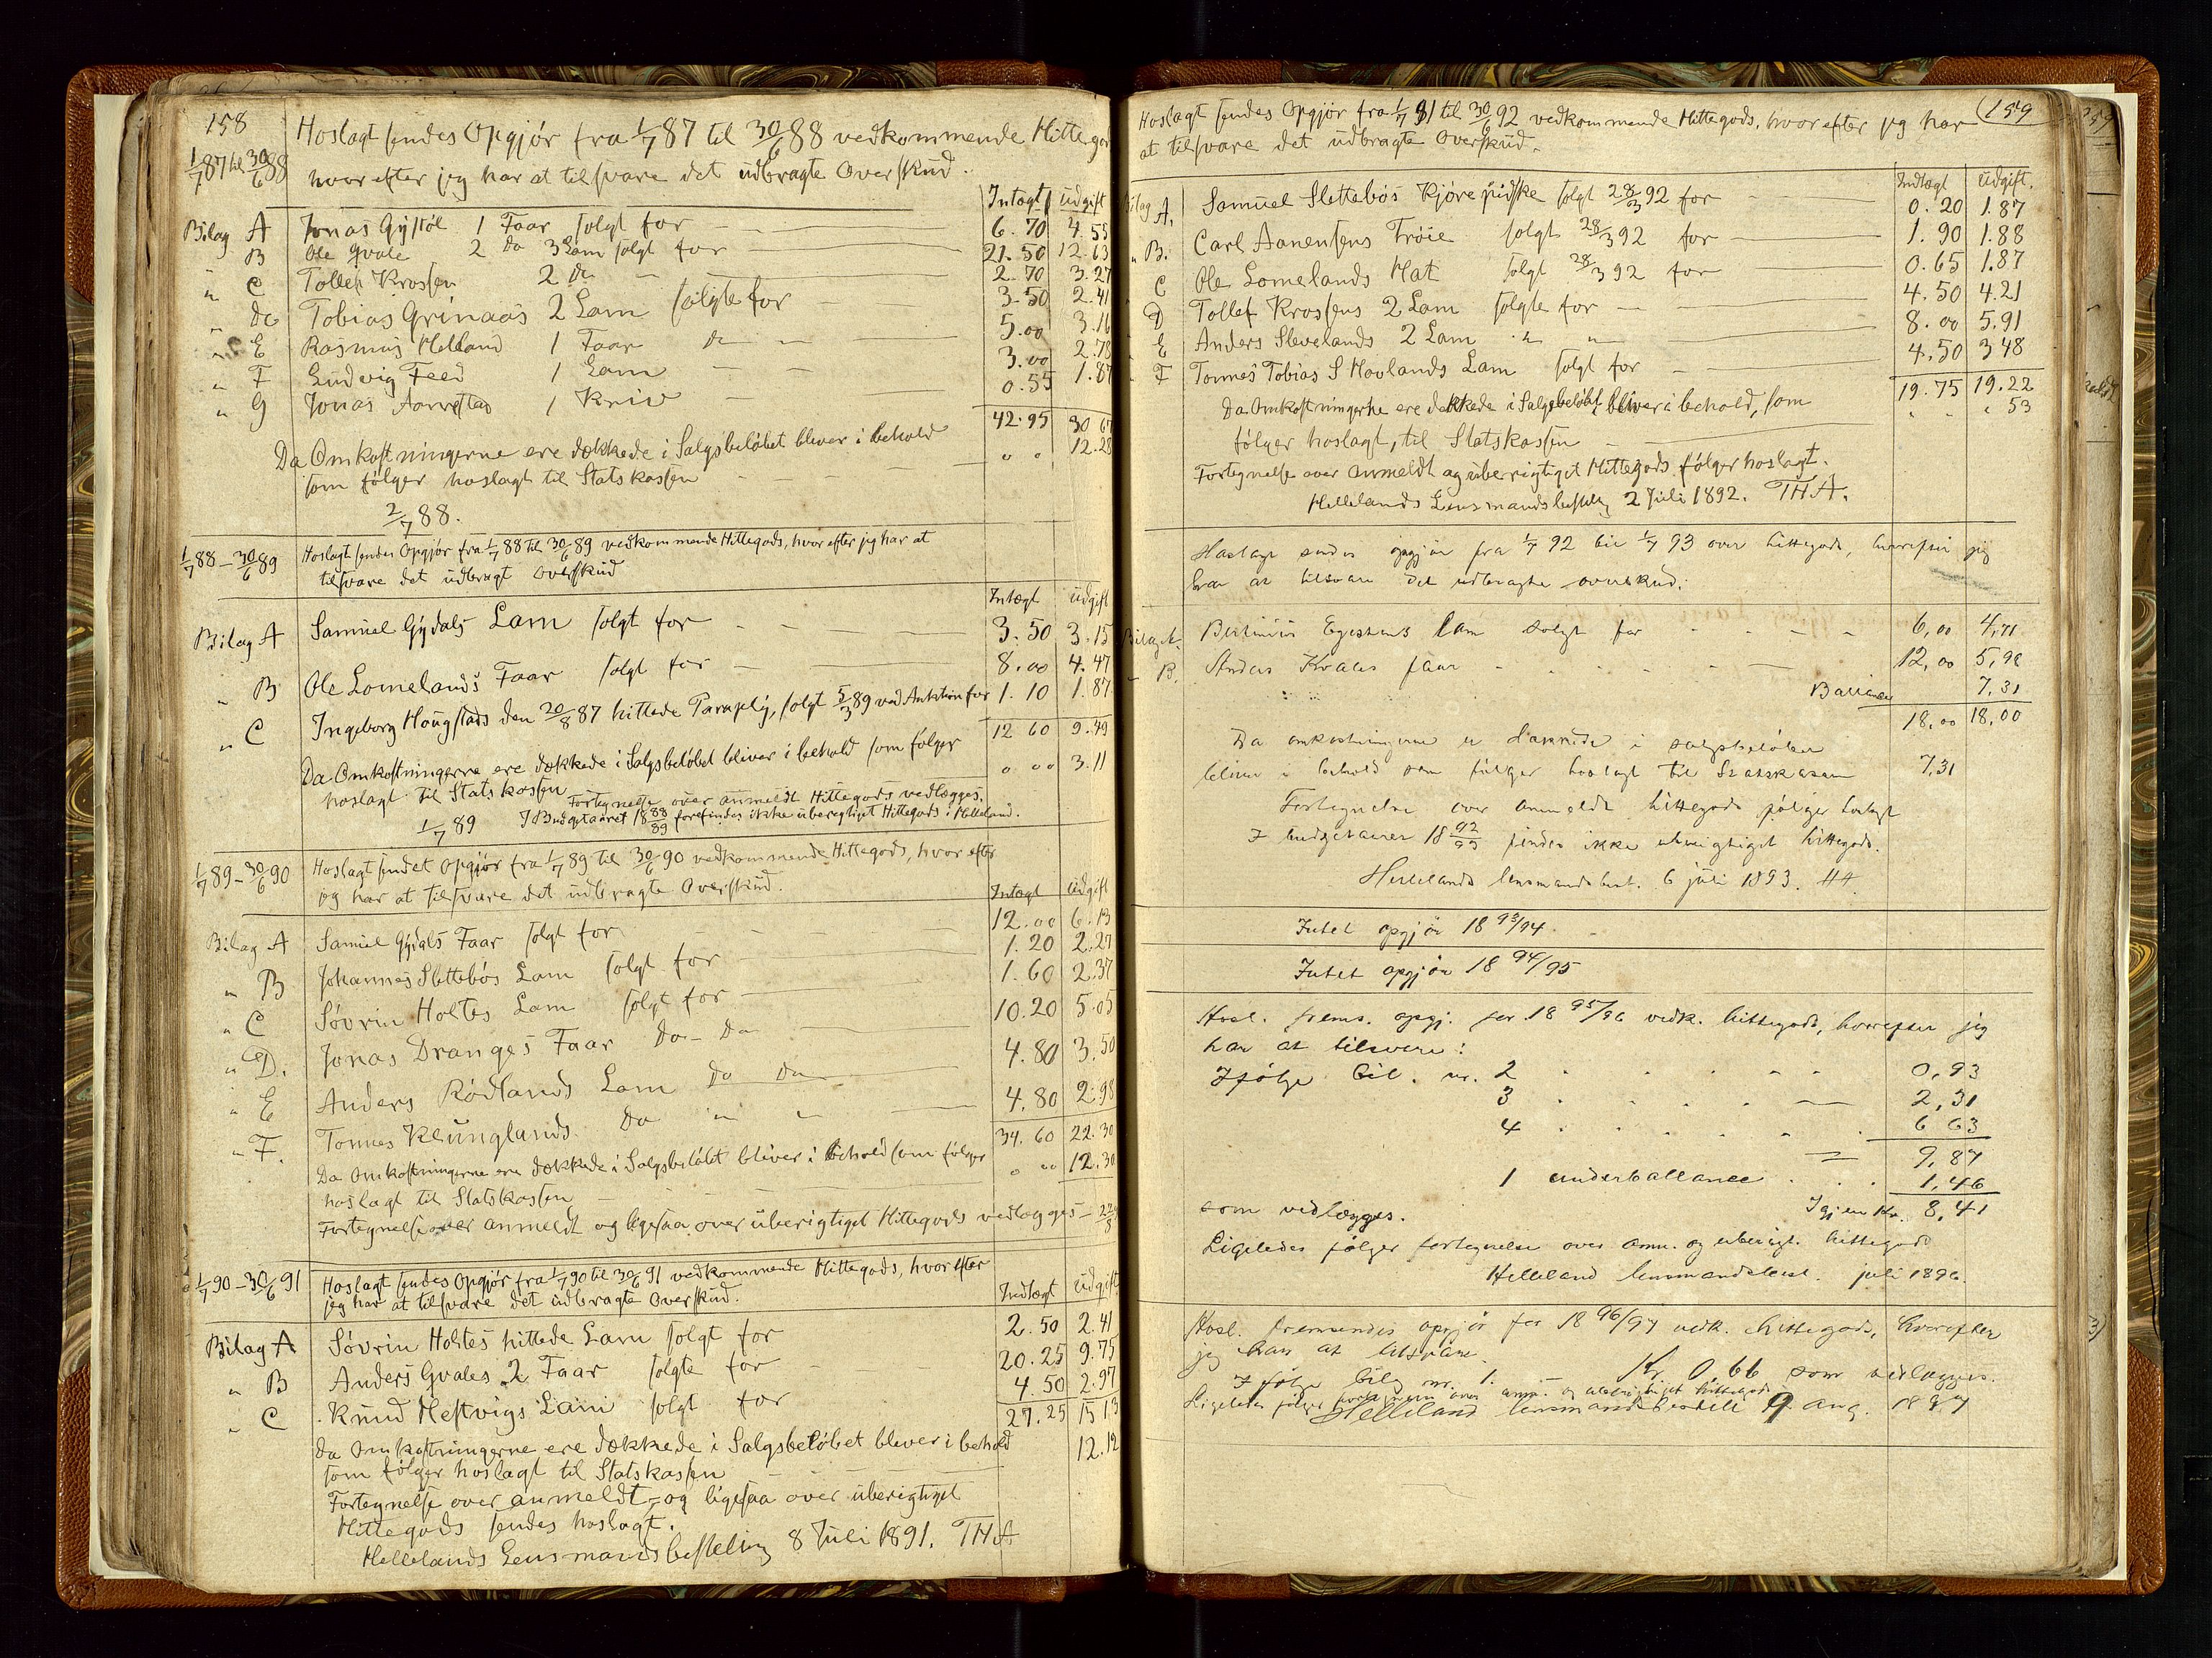 158
1/7 87 til 30/6 88
Hoslagt sendes Opgjör fra 1/7 87 til 30/6 88 vedkommende Hittegod
hvorefter jeg har at tilsvare det udbragte Overskud.
Intægt Udgift
Bilag A Jonas Gystöl 1 Faar solgt for 6.70 4.55
" B Ole Gvale 2 do 3 Lam solgt for 21.50 12.63
" C Tollef Krossen 2 do — 2.70 3.27
" D Tobias Grinaas 2 Lam solgte for 3.50 2.41
" E Rasmus Helland 1 Faar do — 5.00 3.16
" F Ludvig Feed 1 Lam — 3.00 2.78
" G Jonas Aarrestad 1 Kniv — 0.55 1.87
42.95 30 67
Da Omkostningerne ere dækkede i Salgsbelöbet bliver i behold
som fölger hoslagt til Statskassen " " 12.28
2/7 88.
1/7 88 – 30/6 89
Hoslagt sendes Opgjör fra 1/7 88 til 30/6 89 vedkommende Hittegods, hvorefter jeg har at
tilsvare det udbragt Overskud
Intægt Udgift
Bilag A Samuel Gydals Lam solgt for 3.50 3.15
" B Ole Lomelands Faar solgt for 8.00 4.47
" C Ingeborg Hougstads den 20/8 87 hittede Paraply, solgt 5/3 89 ved Auktion for 1.10 1.87
12 60 9.49
Da Omkostningerne ere dækkede i Salgsbelöbet bliver i behold som fölger
hoslagt til Statskassen " " 3.11
Fortegnelse over anmeldt Hittegods vedlægges.
1/7 89 I Budgetaaret 1888/89 forefindes ikke uberigtiget Hittegods i Helleland.
1/7 89 – 30/6 90
Hoslagt sendet Opgjör fra 1/7 89 til 30/6 90 vedkommende Hittegods, hvorefter
jeg har at tilsvare det udbragte Overskud.
Intægt Udgift
Bilag A Samuel Gydals Faar solgt for 12.00 6.13
" B Johannes Slettebös Lam solgt for 1.20 2.27
" C Sövrin Holtes Lam solgt for 1.60 2.37
" D. Jonas Dranges Faar Do – Do 10.20 5.05
" E Anders Rödlands Lam Do Do 4.80 3.50
" F. Tonnes Klunglands Do " " 4.80 2.98
34.60 22.30
Da Omkostningerne ere dækkede i Salgsbelöbet bliver i behold som fölger
hoslagt til Statskassen " " 12.30
Fortegnelse over anmeldt og ligesaa over uberigtiget Hittegods vedlægges –
1/7 90 – 30/6 91
Hoslagt sendes Opgjör fra 1/7 90 til 30/6 91 vedkommende Hittegods, hvorefter
jeg har at tilsvare det udbragte Overskud.
Indtægt Udgift
Bilag A Sövrin Holtes hittede Lam solgt for 2.50 2.41
" B Anders Gvales 2 Faar solgte for 20.25 9.75
" C Knud Hestvigs Lam solgt for 4.50 2.97
27.25 15 13
Da Omkostningerne ere dækkede i Salgsbelöbet bliver i behold
som fölger hoslagt til Statskassen 12.12
Fortegnelse over anmeldt – og ligesaa over uberigtiget
Hittegods sendes hoslagt.
Hellelands Lensmandsbestilling 8 Juli 1891. THA
159
Hoslagt sendes Opgjör fra 1/7 91 til 30/6 92 vedkommende Hittegods, hvorefter jeg har
at tilsvare det udbragte Overskud.
Indtægt Udgift.
Bilag A, Samuel Slettebös Kjörepidske solgt 28/3 92 for 0.20 1.87
" B. Carl Aanensens Tröie solgt 28/3 92 for 1.90 1.88
C Ole Lomelands Hat solgt 28/3 92 for 0.65 1.87
D Tollef Krossens 2 Lam solgte for 4.50 4.21
E Anders Slevelands 2 Lam " " 8.00 5.91
F Tonnes Tobias S Hovlands Lam solgt for 4.50 3 48
19.75 19.22
Da Omkostningerne ere dækkede i Salgsbelöbet bliver i behold, som " " " 53
fölger hoslagt, til Statskassen
Fortegnelse over anmeldt og uberigtiget Hittegods fölger hoslagt.
Hellelands Lensmandsbestilg 2 Juli 1892. THA.
Hoslagt sendes opgjör fra 1/7 92 til 1/7 93 over hittegods, hvorefter jeg
har at tilsvare det udbragte overskud.
Bilag A. Egestens lam solgt for 6,00 4,71
" B. Anders Kvales faar 12,00 5,98
Ballance 7,31
18,00 18,00
Da omkostningerne er dækkede i salgsbelöbet
bliver i behold som fölger hoslagt til Statskassen 7,31
Fortegnelse over anmeldt hittegods fölger hoslagt
I budgetaaret 1892/93 findes ikke uberigtiget hittegods.
Hellelands lensmandsbest. 6 juli 1893.
Intet opgjör 1893/94.
Intet opgjör 1894/95
Hosl. frems. opgj. for 1895/96 vedk. hittegods, hvorefter jeg
har at tilsvare:
Ifölge bil. nr. 2 0,93
3 2,31
4 6 63
9,87
1 underballance 1,46
som vedlægges. Igjen Kr. 8,41
Ligeledes fölger fortegnelse over anm. og uberigt. hittegods
Helleland lensmandsbest. juli 1896.
Hosl. fremsendes opgjör for 1896/97 vedk. hittegods, hvorefter
jeg har at tilsvare
Ifölge bilg nr. 1. – Kr. 0,66 som vedlægges.
Ligeledes fölger fortegnelse over anm. og uberigtiget hittegods
Helleland lensmandsbestill 9 aug. 1897